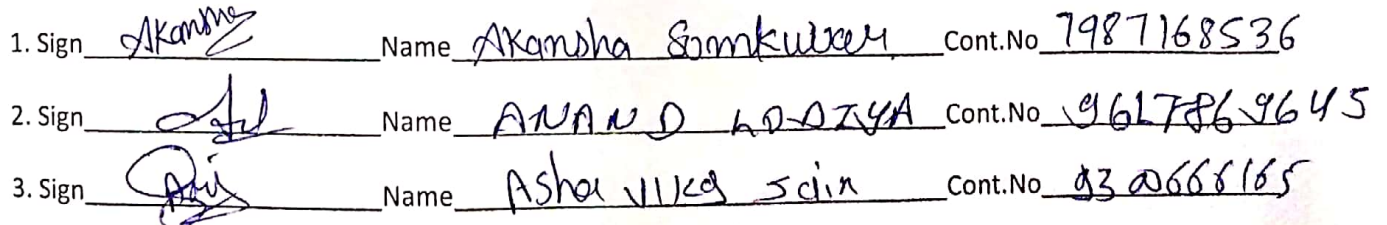 1. Sign Akansha Name Akansha Somkuwar Cont.No 7987168536
2. Sign Name ANAND LODIYA Cont.No 9617869645
3. Sign Name Asha Vikas Jain Cont.No 9300666165